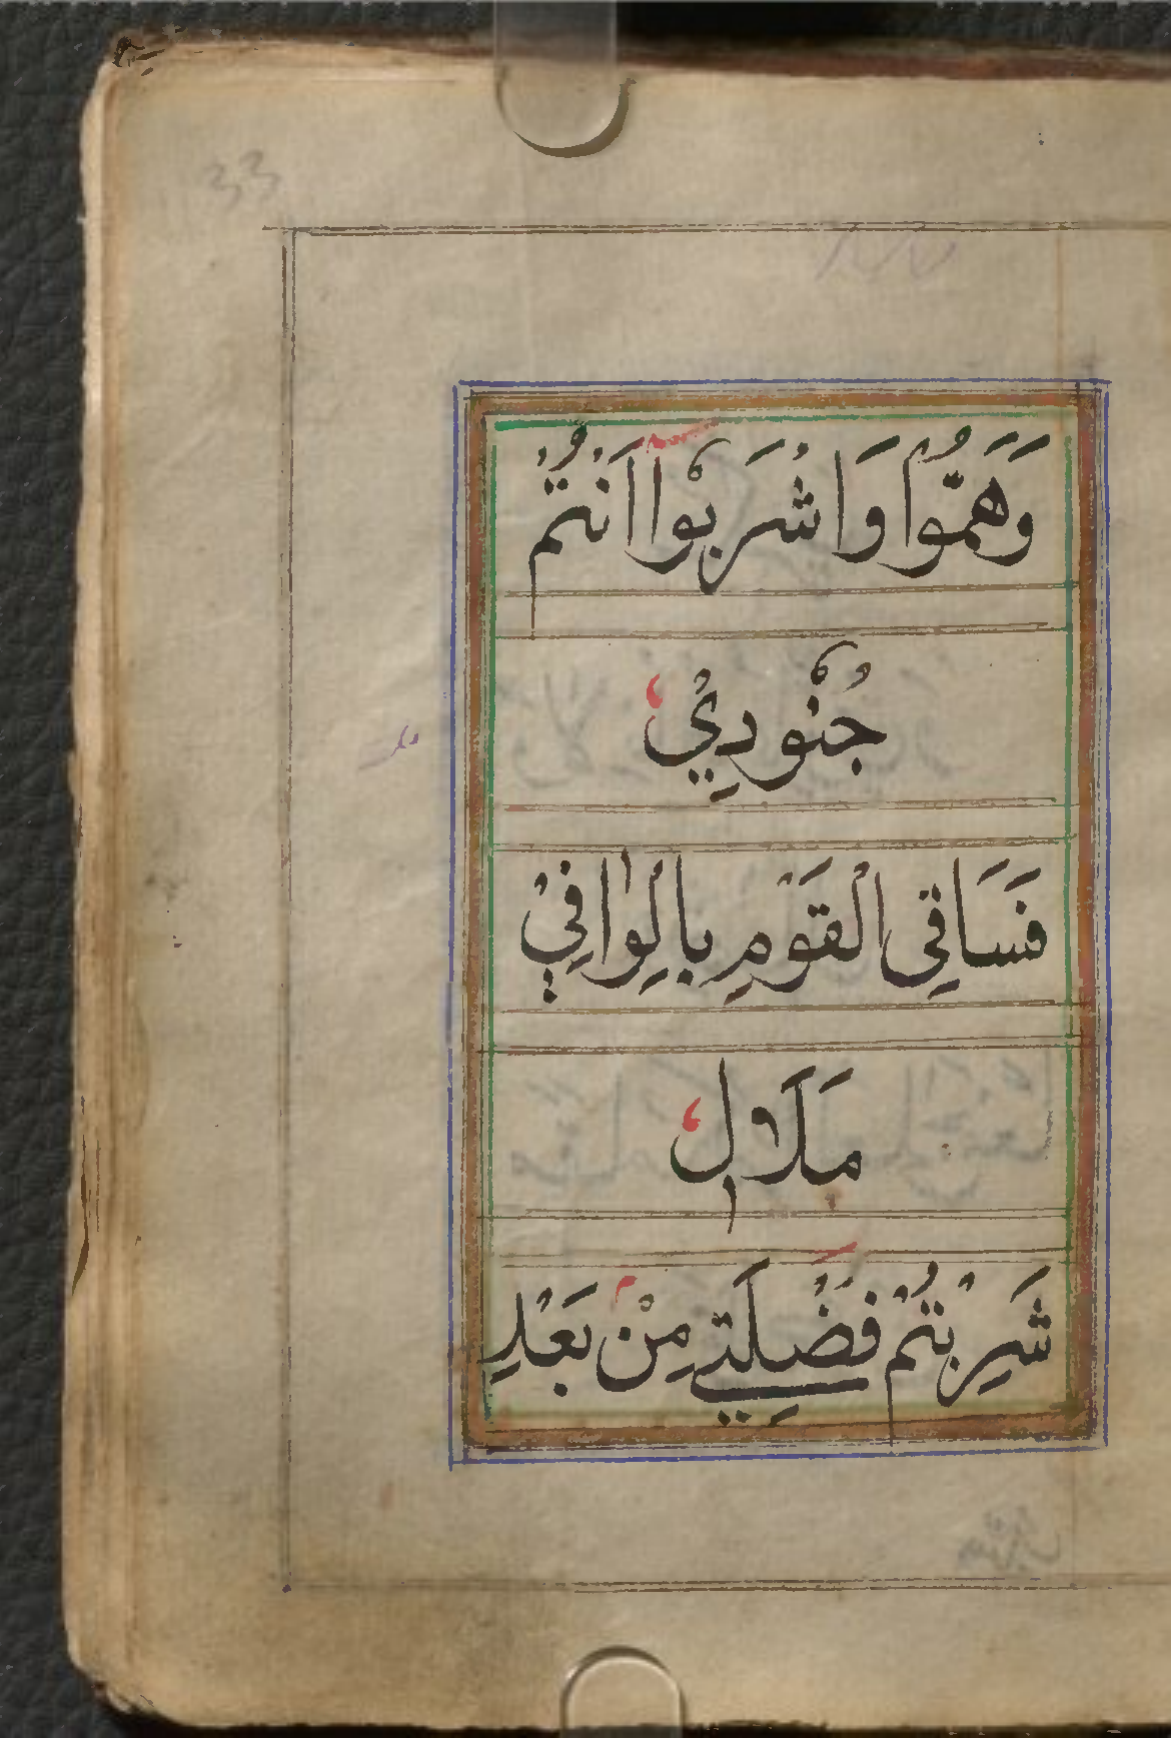 33
وَهَمُّوا وَاشْرَبُوا اَنْتُمْ
جُنُودِيْ
فَسَاقِى الْقَوْمِ بِالْوَافِيْ
مَلَالٖ
شَرِبْتُمْ فُضْلَتِيْ مِنْ بَعْدِ